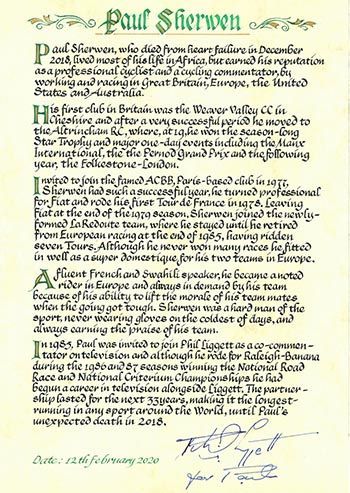 Paul Sherwen
Paul Sherwen, who died from heart failure in December
2018, lived most of his life in Africa, but earned his reputation
as a professional cyclist and a cycling commentator, by
working and racing in Great Britain, Europe, the United
States and Australia.
His first club in Britain was the Weaver Valley CC in
Cheshire and after a very successful period he moved to
the Altrincham R.C., where, at 19, he won the season-long
Star Trophy and major one-day events including the Manx
International, the the Pernod Grand Prix and the following
year, the Folkestone-London.
Invited to join the famed ACBB, Paris-based club in 1977,
Sherwen had such a successful year, he turned professional
for Fiat and rode his first Tour de France in 1978. Leaving
Fiat at the end of the 1979 season, Sherwen joined the newly-
formed La Redoute team, where he stayed until he retired
from European racing at the end of 1985, having ridden
seven Tours. Although he never won many races he fitted
in well as a super domestique, for his two teams in Europe.
A fluent French and Swahili speaker, he became a noted
rider in Europe and always in demand by his team
because of his ability to lift the morale of his team mates
when the going got tough. Sherwen was a hard man of the
sport, never wearing gloves on the coldest of days, and
always earning the praise of his team.
In 1985, Paul was invited to join Phil Liggett as a co-commen-
tator on television and although he rode for Raleigh-Banana
during the 1986 and 87 seasons winning the National Road
Race and National Criterium Championships he had
begun a career in television alongside Liggett. The partner-
ship lasted for the next 33 years, making it the longest-
running in any sport around the World, until Paul's
unexpected death in 2018.
Phil Liggett
for Paul
Date: 12th February 2020